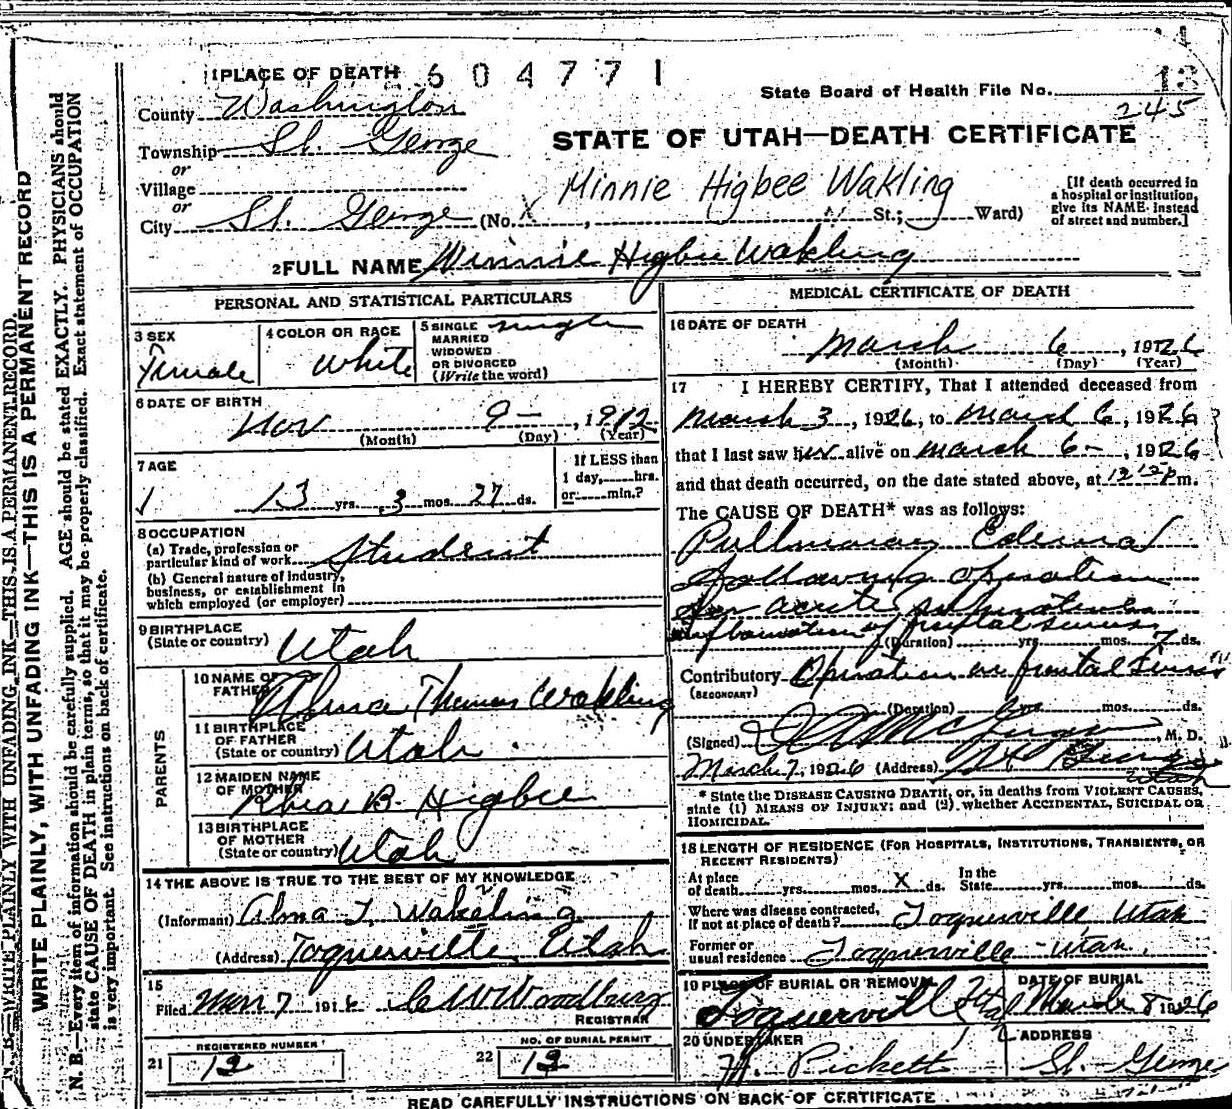 1 PLACE OF DEATH 604771
13
State Board of Health File No.
245
County Washington
Township St. George
or
Village
or
City St. George (No. X, St.; Ward)
STATE OF UTAH—DEATH CERTIFICATE
Minnie Higbee Wakling
[If death occurred in
a hospital or institution,
give its NAME instead
of street and number.]
2 FULL NAME Minnie Higbee Wakling
PERSONAL AND STATISTICAL PARTICULARS
3 SEX
Female
4 COLOR OR RACE
White
5 SINGLE single
MARRIED
WIDOWED
OR DIVORCED
(Write the word)
6 DATE OF BIRTH
Nov 9 - , 1912
(Month) (Day) (Year)
7 AGE
13 yrs. 3 mos. 27 ds.
If LESS than
1 day, hrs.
or min.?
8 OCCUPATION
(a) Trade, profession or
particular kind of work Student
(b) General nature of industry,
business, or establishment in
which employed (or employer)
9 BIRTHPLACE
(State or country) Utah
PARENTS
10 NAME OF
FATHER Thomas Wakling
11 BIRTHPLACE
OF FATHER
(State or country) Utah
12 MAIDEN NAME
OF MOTHER B. Higbee
13 BIRTHPLACE
OF MOTHER
(State or country) Utah
14 THE ABOVE IS TRUE TO THE BEST OF MY KNOWLEDGE
(Informant) Alma T. Wakeling
(Address) Toquerville, Utah
15
Filed Mar 7 191 6 Woodbury
REGISTRAR
21
REGISTERED NUMBER
12
22
NO. OF BURIAL PERMIT
12
MEDICAL CERTIFICATE OF DEATH
16 DATE OF DEATH
March 6, 1926
(Month) (Day) (Year)
17 I HEREBY CERTIFY, That I attended deceased from
March 3, 1926, to March 6, 1926
that I last saw her alive on March 6 -, 1926
and that death occurred, on the date stated above, at m.
The CAUSE OF DEATH* was as follows:
Pullmonary Edema
following operation
for acute
inflamation of frontal sinus
(Duration) yrs. mos. 7 ds.
Contributory Operation on frontal sinus
(SECONDARY)
(Duration) yrs. mos. ds.
(Signed) McGregor, M. D.
March 7, 1926 (Address) St George
Utah
* State the DISEASE CAUSING DEATH, or, in deaths from VIOLENT CAUSES,
state (1) MEANS OF INJURY; and (2) whether ACCIDENTAL, SUICIDAL OR
HOMICIDAL.
18 LENGTH OF RESIDENCE (FOR HOSPITALS, INSTITUTIONS, TRANSIENTS, OR
RECENT RESIDENTS)
At place
of death yrs. mos. X ds.
In the
State yrs. mos. ds.
Where was disease contracted,
If not at place of death? Toquerville, Utah
Former or
usual residence Toquerville - Utah.
19 PLACE OF BURIAL OR REMOVAL
Toquerville
DATE OF BURIAL
March 8 1926
20 UNDERTAKER
Pickett
ADDRESS
St. George
READ CAREFULLY INSTRUCTIONS ON BACK OF CERTIFICATE
N. B.—WRITE PLAINLY WITH UNFADING INK—THIS IS A PERMANENT RECORD.
WRITE PLAINLY, WITH UNFADING INK—THIS IS A PERMANENT RECORD
N. B.—Every item of information should be carefully supplied. AGE should be stated EXACTLY. PHYSICIANS should
state CAUSE OF DEATH in plain terms, so that it may be properly classified. Exact statement of OCCUPATION
is very important. See instructions on back of certificate.